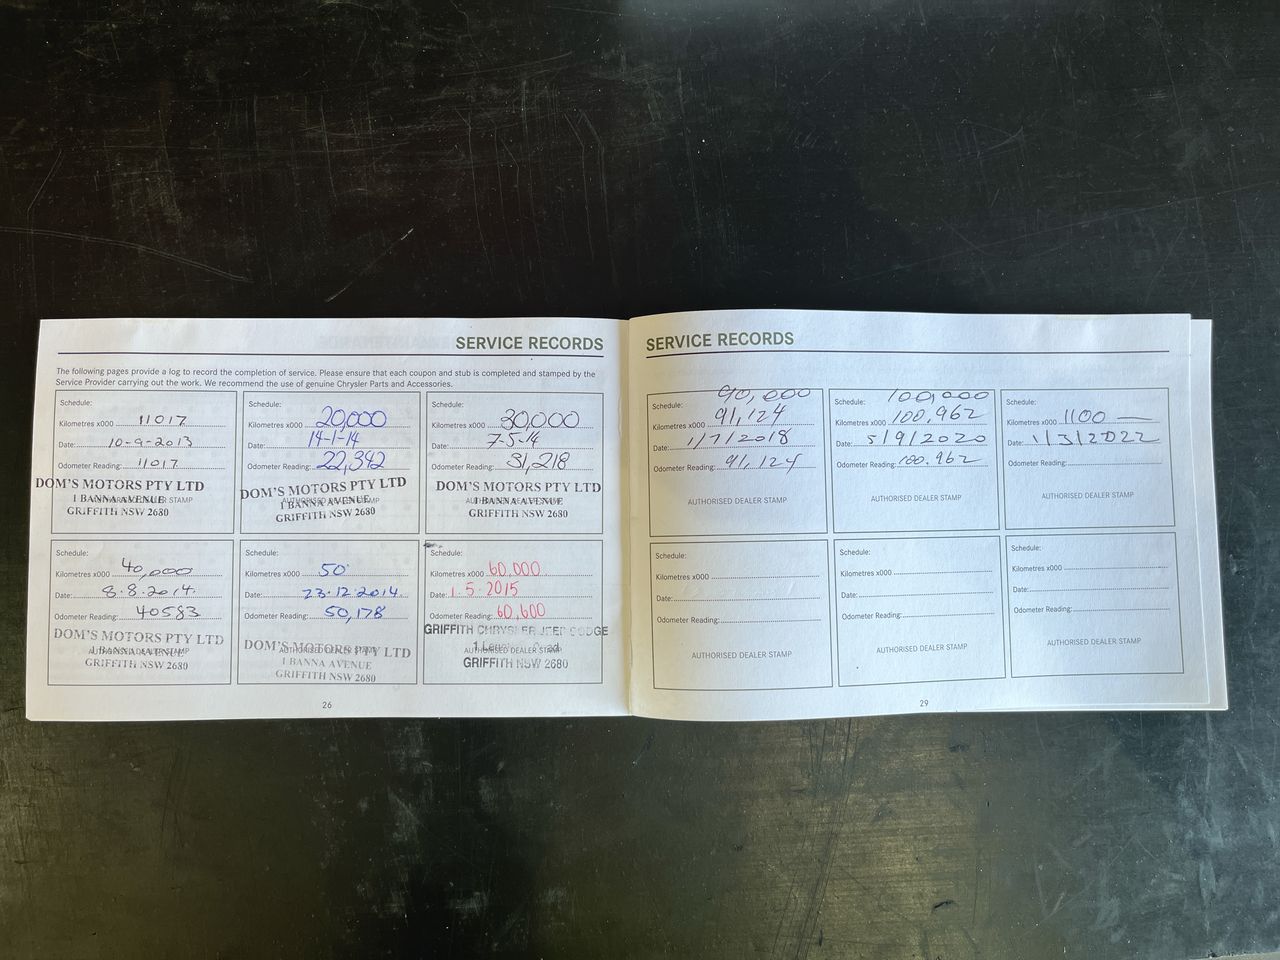 SERVICE RECORDS
The following pages provide a log to record the completion of service. Please ensure that each coupon and stub is completed and stamped by the
Service Provider carrying out the work. We recommend the use of genuine Chrysler Parts and Accessories.
Schedule:
Kilometres x000 11017
Date: 10-9-2013
Odometer Reading: 11017
AUTHORISED DEALER STAMP
DOM'S MOTORS PTY LTD
1 BANNA AVENUE
GRIFFITH NSW 2680
Schedule:
Kilometres x000 20,000
Date: 14-1-14
Odometer Reading: 22,342
AUTHORISED DEALER STAMP
DOM'S MOTORS PTY LTD
1 BANNA AVENUE
GRIFFITH NSW 2680
Schedule:
Kilometres x000 30,000
Date: 7-5-14
Odometer Reading: 31,218
AUTHORISED DEALER STAMP
DOM'S MOTORS PTY LTD
1 BANNA AVENUE
GRIFFITH NSW 2680
Schedule:
Kilometres x000 40,000
Date: 8.8.2014.
Odometer Reading: 40583
AUTHORISED DEALER STAMP
DOM'S MOTORS PTY LTD
1 BANNA AVENUE
GRIFFITH NSW 2680
Schedule:
Kilometres x000 50
Date: 23.12.2014.
Odometer Reading: 50,178
AUTHORISED DEALER STAMP
DOM'S MOTORS PTY LTD
1 BANNA AVENUE
GRIFFITH NSW 2680
Schedule:
Kilometres x000 60,000
Date: 1.5.2015
Odometer Reading: 60,600
AUTHORISED DEALER STAMP
GRIFFITH CHRYSLER JEEP DODGE
GRIFFITH NSW 2680
26
SERVICE RECORDS
Schedule: 90,000
Kilometres x000 91,124
Date: 1/7/2018
Odometer Reading: 91,124
AUTHORISED DEALER STAMP
Schedule: 100,000
Kilometres x000 100,962
Date: 5/9/2020
Odometer Reading: 100.962
AUTHORISED DEALER STAMP
Schedule:
Kilometres x000 1100 —
Date: 1/3/2022
Odometer Reading:
AUTHORISED DEALER STAMP
Schedule:
Kilometres x000
Date:
Odometer Reading:
AUTHORISED DEALER STAMP
Schedule:
Kilometres x000
Date:
Odometer Reading:
AUTHORISED DEALER STAMP
Schedule:
Kilometres x000
Date:
Odometer Reading:
AUTHORISED DEALER STAMP
29